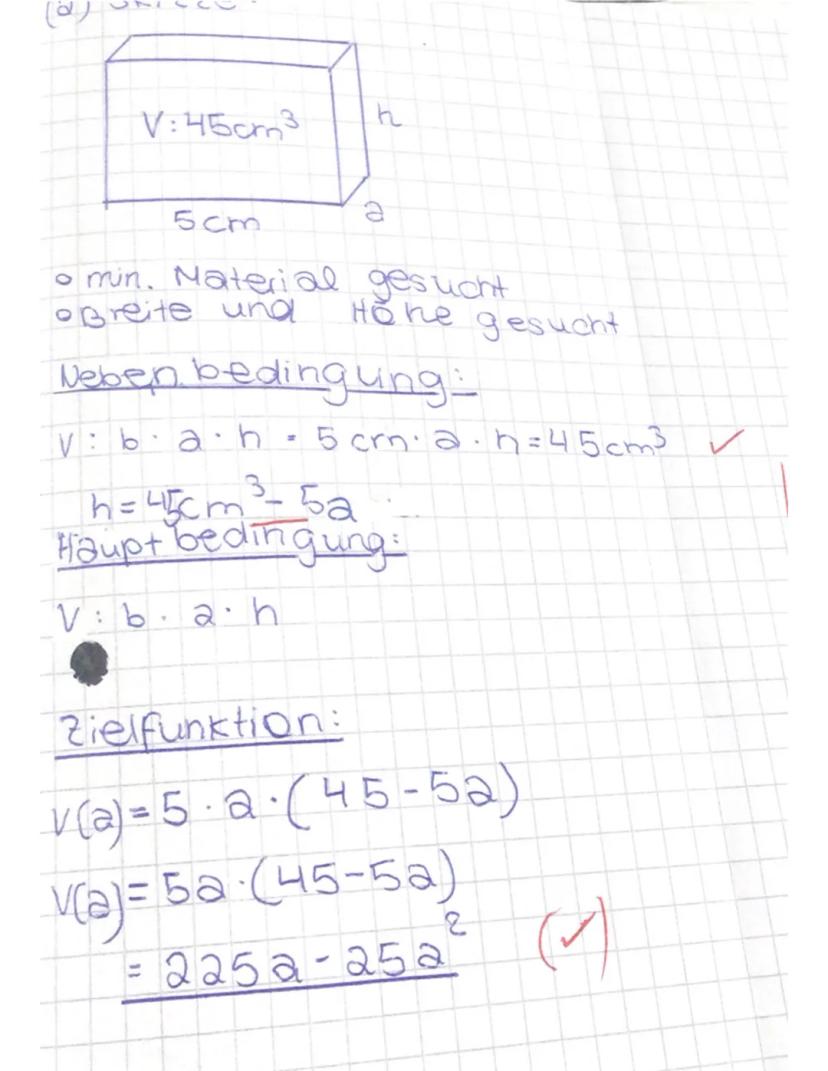 (a)
V:45cm³
h
a
5cm
o min. Material gesucht
o Breite und Höhe gesucht
Nebenbedingung:
V: b · a · h = 5 cm · a · h = 45cm³ ✓
h = 45cm³ - 5a
Hauptbedingung:
V: b · a · h
Zielfunktion:
V(a) = 5 · a · (45 - 5a)
V(a) = 5a · (45 - 5a)
= 225a - 25a² (✓)